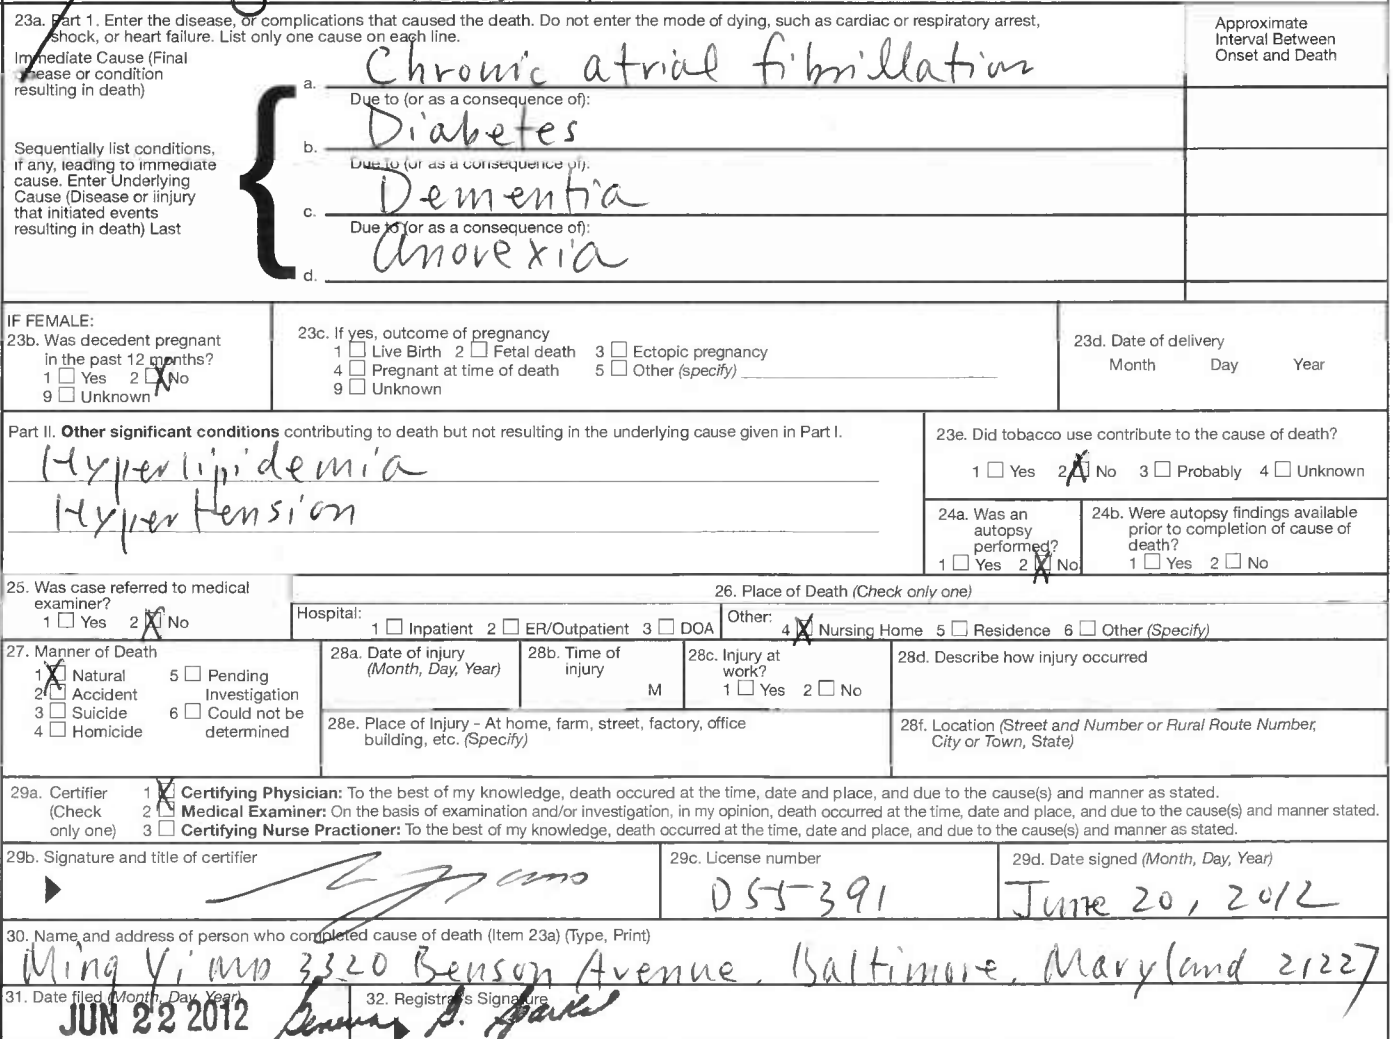 23a. Part 1. Enter the disease, or complications that caused the death. Do not enter the mode of dying, such as cardiac or respiratory arrest,
shock, or heart failure. List only one cause on each line.
Approximate
Interval Between
Onset and Death
Immediate Cause (Final
disease or condition
resulting in death)
a. Chronic atrial fibrillation
Due to (or as a consequence of):
b. Diabetes
Sequentially list conditions,
if any, leading to immediate
cause. Enter Underlying
Cause (Disease or iinjury
that initiated events
resulting in death) Last
Due to (or as a consequence of):
c. Dementia
Due to (or as a consequence of):
d. Anorexia
IF FEMALE:
23b. Was decedent pregnant
in the past 12 months?
1 ☐ Yes 2 ☒ No
9 ☐ Unknown
23c. If yes, outcome of pregnancy
1 ☐ Live Birth 2 ☐ Fetal death 3 ☐ Ectopic pregnancy
4 ☐ Pregnant at time of death 5 ☐ Other (specify)
9 ☐ Unknown
23d. Date of delivery
Month Day Year
Part II. Other significant conditions contributing to death but not resulting in the underlying cause given in Part I.
Hyperlipidemia
Hypertension
23e. Did tobacco use contribute to the cause of death?
1 ☐ Yes 2 ☒ No 3 ☐ Probably 4 ☐ Unknown
24a. Was an
autopsy
performed?
1 ☐ Yes 2 ☒ No
24b. Were autopsy findings available
prior to completion of cause of
death?
1 ☐ Yes 2 ☐ No
25. Was case referred to medical
examiner?
1 ☐ Yes 2 ☒ No
26. Place of Death (Check only one)
Hospital: 1 ☐ Inpatient 2 ☐ ER/Outpatient 3 ☐ DOA
Other: 4 ☒ Nursing Home 5 ☐ Residence 6 ☐ Other (Specify)
27. Manner of Death
1 ☒ Natural 5 ☐ Pending
2 ☐ Accident Investigation
3 ☐ Suicide 6 ☐ Could not be
4 ☐ Homicide determined
28a. Date of injury
(Month, Day, Year)
28b. Time of
injury
M
28c. Injury at
work?
1 ☐ Yes 2 ☐ No
28d. Describe how injury occurred
28e. Place of Injury - At home, farm, street, factory, office
building, etc. (Specify)
28f. Location (Street and Number or Rural Route Number,
City or Town, State)
29a. Certifier
(Check
only one)
1 ☒ Certifying Physician: To the best of my knowledge, death occured at the time, date and place, and due to the cause(s) and manner as stated.
2 ☐ Medical Examiner: On the basis of examination and/or investigation, in my opinion, death occurred at the time, date and place, and due to the cause(s) and manner stated.
3 ☐ Certifying Nurse Practioner: To the best of my knowledge, death occurred at the time, date and place, and due to the cause(s) and manner as stated.
29b. Signature and title of certifier
29c. License number
D55391
29d. Date signed (Month, Day, Year)
June 20, 2012
30. Name and address of person who completed cause of death (Item 23a) (Type, Print)
Ming Yi MD 3320 Benson Avenue. Baltimore, Maryland 21227
31. Date filed (Month, Day, Year)
JUN 22 2012
32. Registrar's Signature